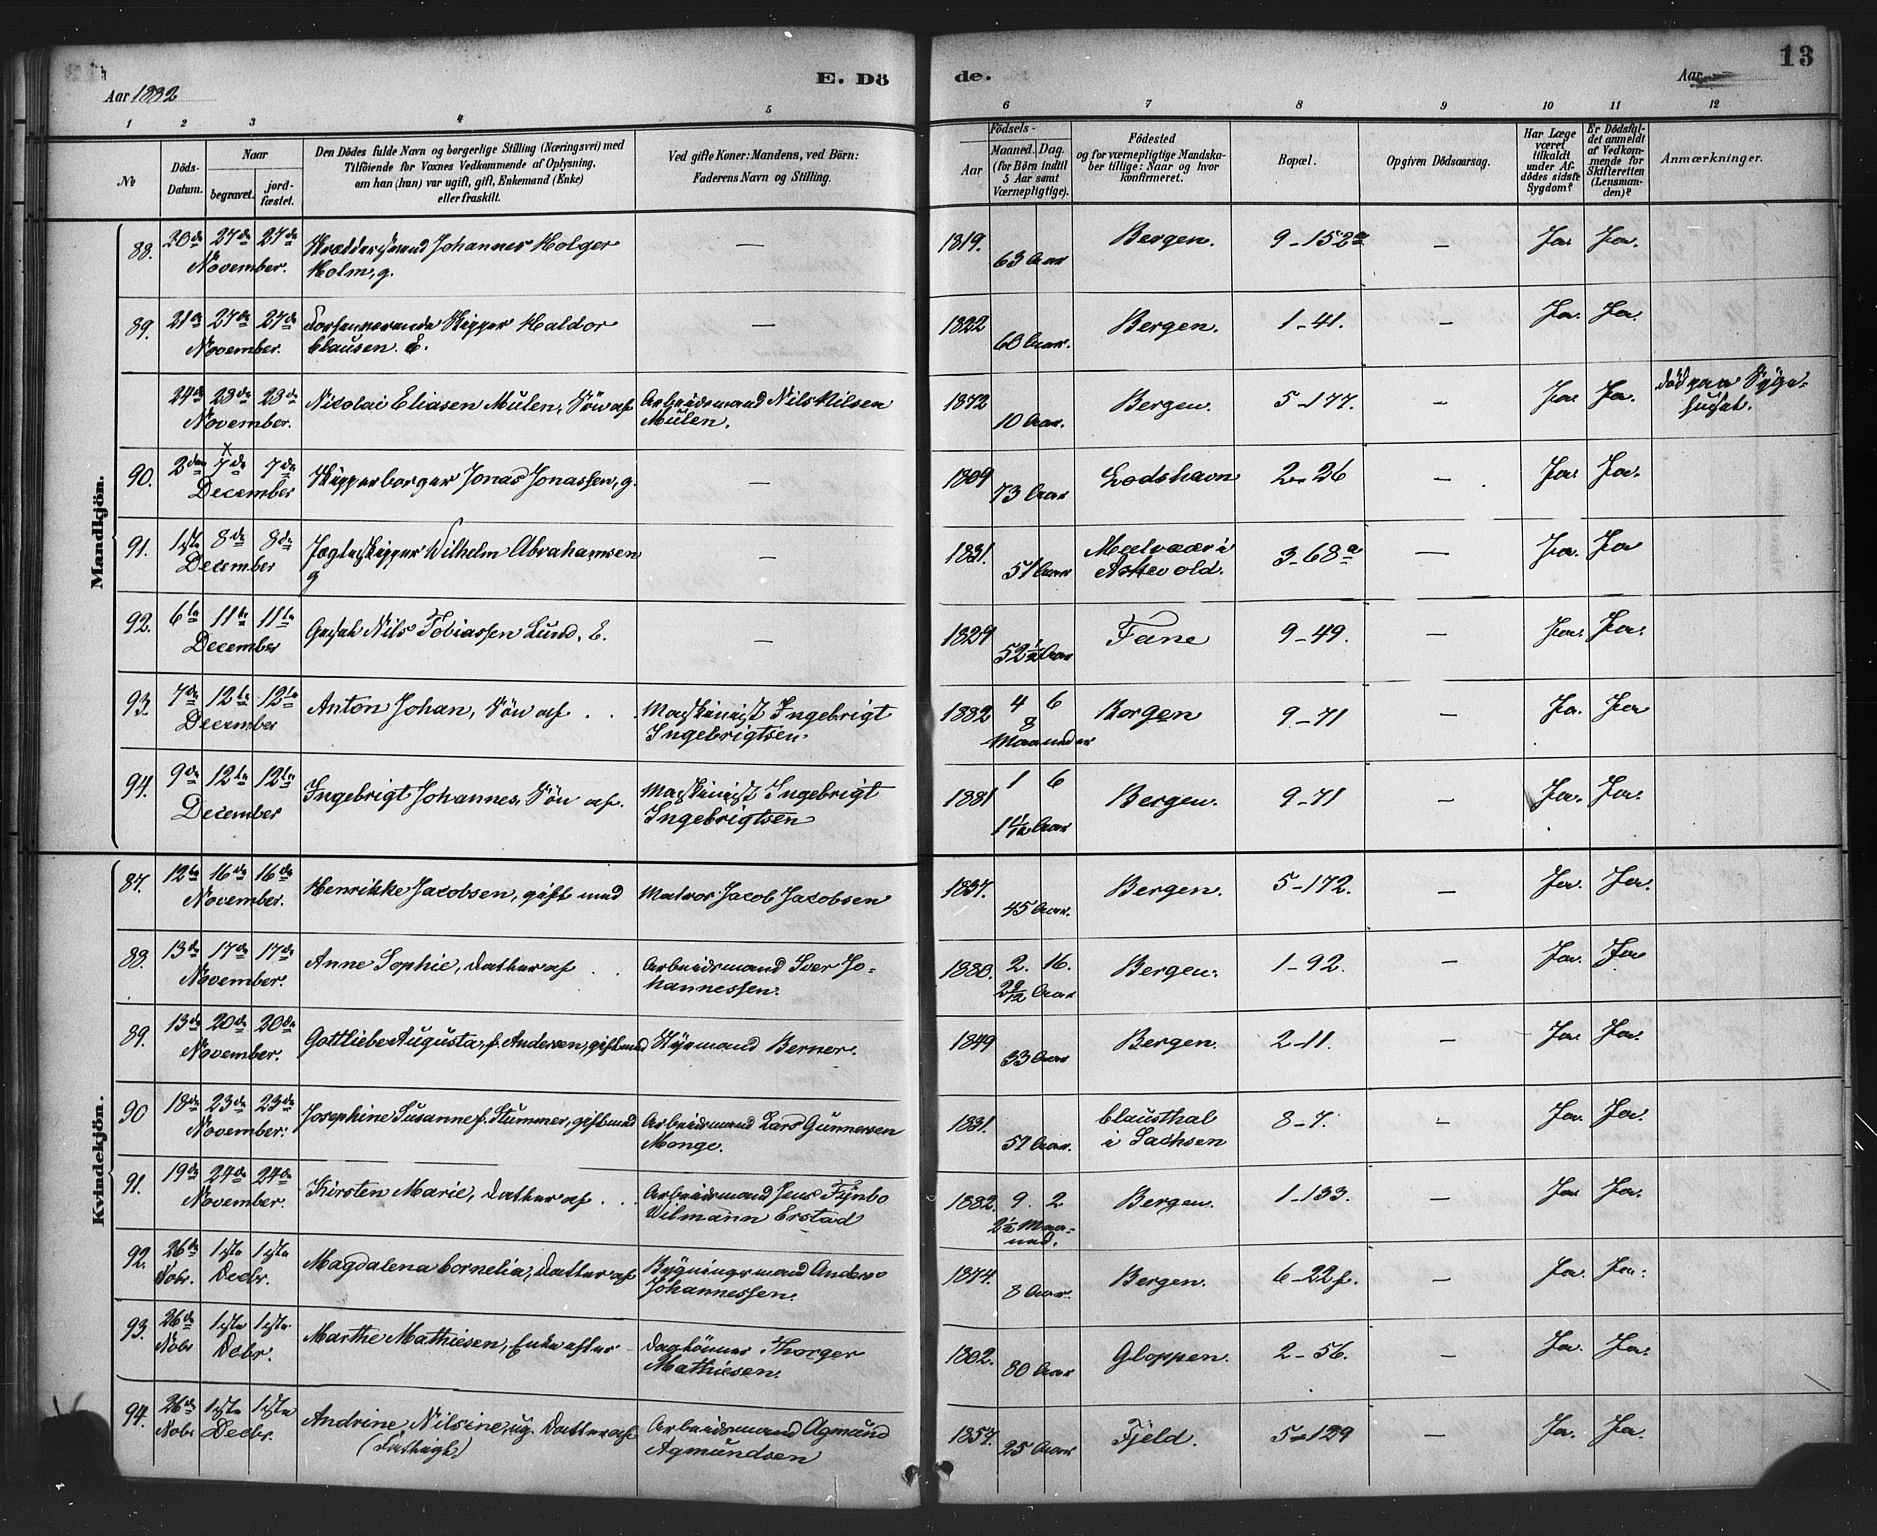 13
E. Döde.
Aar 1882
Aar
1 2 3 4 5 6 7 8 9 10 11 12
No
Döds-Datum.
Naar
begravet.
jord-fæstet.
Den Dödes fulde Navn og borgerlige Stilling (Næringsvei) med
Tilföiende for Voxnes Vedkommende af Oplysning,
om han (hun) var ugift, gift, Enkemand (Enke)
eller fraskilt.
Ved gifte Koner: Mandens, ved Börn:
Faderens Navn og Stilling.
Födsels-
Aar
Maaned. Dag.
(for Börn indtil
5 Aar samt
Værnepligtige).
Födested
og for værnepligtige Mandska-
ber tillige: Naar og hvor
konfirmeret.
Bopæl.
Opgiven Dödsaarsag.
Har Læge
været
tilkaldt
under Af-
dödes sidste
Sygdom?
Er Dödsfal-
det anmeldt
af Vedkom-
mende for
Skifteretten
(Lensman-
den)?
Anmærkninger.
Mandkjön.
88. 20de 27de 27de Skræddersvend Johannes Holger — 1819. Bergen. 9-152a — Ja. Ja.
November. Holm, g. 63 Aar
89. 21de 27de 27de Forhenværende Skipper Haldor — 1822 Bergen. 1-41. — Ja. Ja.
November. Clausen. E. 60 Aar.
24de 28de 28de Nicolai Eliasen Mulen, Sön af Arbeidsmand Nils Nilsen 1872 Bergen. 5-177. — Ja. Ja. död paa Syge-
November. Mulen. 10 Aar. huset.
90. 2den 7de 7de Skipperborger Jonas Jonassen, g. — 1809 Lodshavn 2-26 — Ja. Ja.
December 73 Aar
91. 1ste 8de 8de Jægteskipper Wilhelm Abrahamsen — 1831. Melvær i 3-68a — Ja. Ja
December g 51 Aar Askevold.
92. 6te 11te 11te Nils Tobiassen Lund, E. — 1829 Fane 9-49. — Ja. Ja.
December 52½ Aar
93. 7de 12te 12te Anton Johan, Sön af . . . Maskinist Ingebrigt 1882 4 6 Bergen 9-71 — Ja. Ja
December Ingebrigtsen. 8 Maaneder
94. 9de 12te 12te Ingebrigt Johannes, Sön af. Maskinist Ingebrigt 1881 1 6 Bergen. 9-71 — Ja. Ja.
December Ingebrigtsen Aar
Kvindekjön.
87. 12te 16de 16de Henrikke Jacobsen, gift med Matros Jacob Jacobsen 1837. Bergen. 5-172. — Ja. Ja.
November. 45 Aar.
88. 13de 17de 17de Anne Sophie, Datter af . . Arbeidsmand Iver Jo- 1880. 2. 16. Bergen. 1-92. — Ja. Ja
November. hannessen. Aar
89. 13de 20de 20de Gottliebe Augusta, f. Andersen, gift med Styrmand Berner. 1849 Bergen. 2-11. — Ja. Ja.
November. 33 Aar
90 18de 23de 23de Josephine Susanne f. Stummer, gift med Arbeidsmand Lars Gunnersen 1831. Clausthal 8-7. — Ja. Ja.
November. Monge. 51 Aar. i Sachsen
91. 19de 24de 24de Kirsten Marie, Datter af . . Arbeidsmand Jens Fynbo 1882. 9. 2 Bergen. 1-133. — Ja. Ja.
November. Wilmann Erstad 2½ Maa-
ned.
92. 26de 1ste 1ste Magdalena Cornelia, Datter af Bygningsmand Anders 1874. Bergen. 6-22f. — Ja. Ja.
Nobr. Decbr. Johannessen. 8 Aar.
93. 26de 1ste 1ste Marthe Mathiesen, Enke efter Daglönner Thorger 1802. Gloppen. 2-56. — Ja. Ja.
Nobr Debr. Mathiesen. 80 Aar
94. 26de 1ste 1ste Andrine Nilsine, ug. Datter af Arbeidsmand Agmund 1857. Fjeld. 5-129 — Ja. Ja.
Nobr Decbr. (Fattigk) Agmundsen 25 Aar